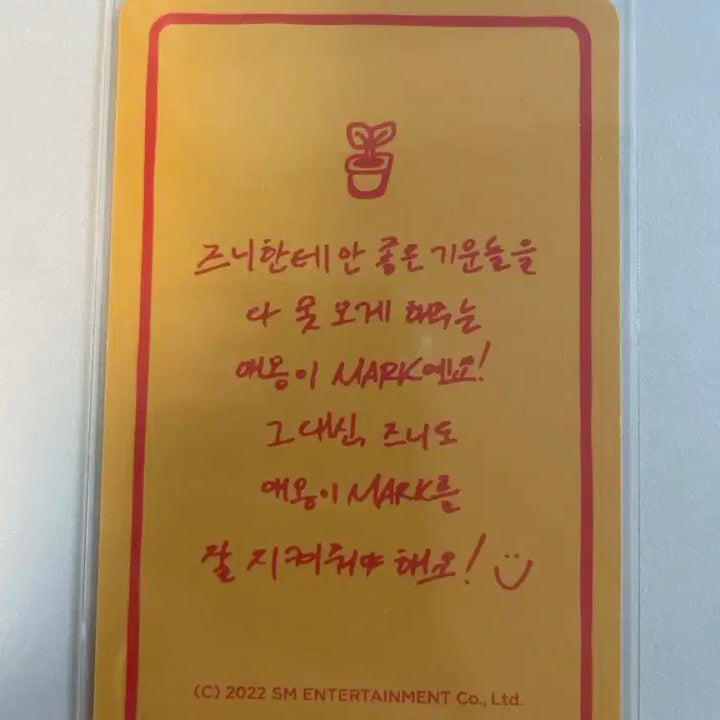 즈니한테 안 좋은 기운들을
다 못 오게 해주는
애옹이 MARK예요!
그 대신, 즈니도
애옹이 MARK를
잘 지켜줘야 해요!
(C) 2022 SM ENTERTAINMENT Co., Ltd.